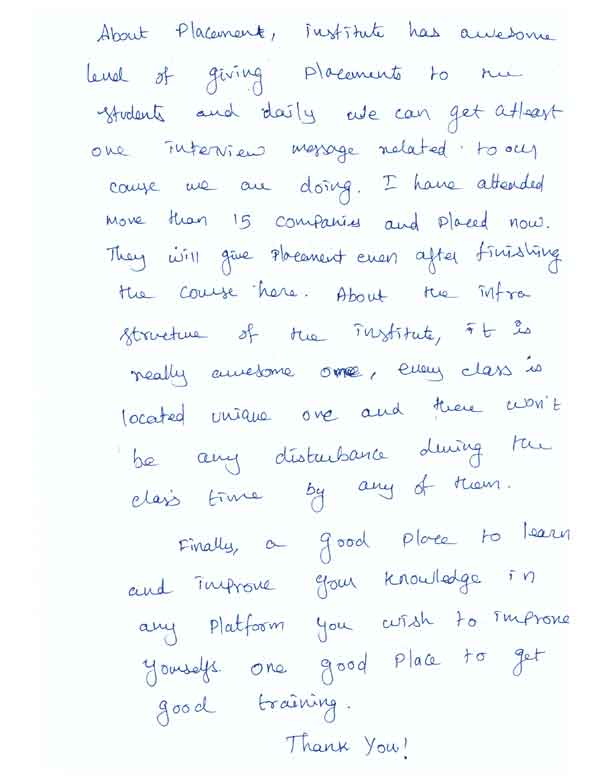 About Placement, institute has awesome
level of giving Placements to the
students and daily we can get atleast
one interview message related to our
couse we are doing. I have attended
more than 15 companies and placed now.
They will give Placement even after finishing
the course here. About the infra
structure of the institute, it is
really awesome one, every class is
located unique one and there won't
be any disturbance during the
class time by any of them.
Finally, a good place to learn
and improve your knowledge in
any Platform you wish to improve
yourselfs one good Place to get
good training.
Thank You!